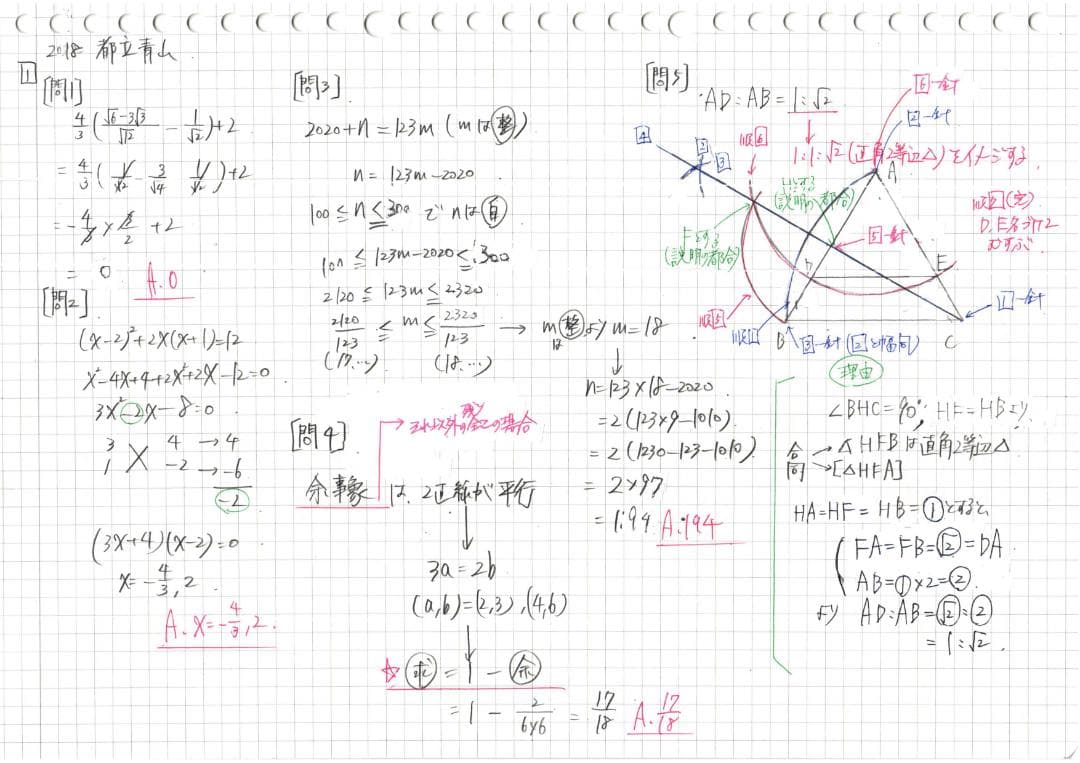 2018 都立青山
1
[問1]
4/3(√6-3√3/√12 - 1/√2)+2
= 4/3(1/√2 - 3/√4 - 1/√2)+2
= -4/3 × 3/2 + 2
= 0
A.0
[問2]
(x-2)²+2x(x+1)=12
x²-4x+4+2x²+2x-12=0
3x²-2x-8=0
3 4 → 4
1 -2 → -6
-2
(3x+4)(x-2)=0
x=-4/3, 2
A. x=-4/3, 2.
[問3]
2020+n=123m (mは整)
n=123m-2020
100≦n≦300 でnは自
100≦123m-2020≦300
2120≦123m≦2320
2120/123≦m≦2320/123 → mは整よりm=18
(17,...) (18.…)
n=123×18-2020
=2(123×9-1010)
=2(1230-123-1010)
=2×97
=194 A.194
[問4]
それ以外の全ての場合
余事象は、2直線が平行
3a=2b
(a,b)=(2,3),(4,6)
☆求=1-余
=1- 2/6×6 = 17/18 A.17/18
[問5]
AD:AB=1:√2
1:1:√2(直角2等辺△)をイメージする
6一針
2一針
4
2
3
順6
A
Hとする
(説明の都合)
Fとする
(説明の都合)
5一針
順7(定)
D,E名づけて
むすぶ
D
E
順5
順1
1一針
B
3一針(2と幅同)
C
理由
∠BHC=90°, HF=HBより
合同 → △HFBは直角2等辺△
→ [△HFA]
HA=HF=HB=①とすると
FA=FB=√2=DA
AB=①×2=②
より AD:AB=√2:②
=1:√2.